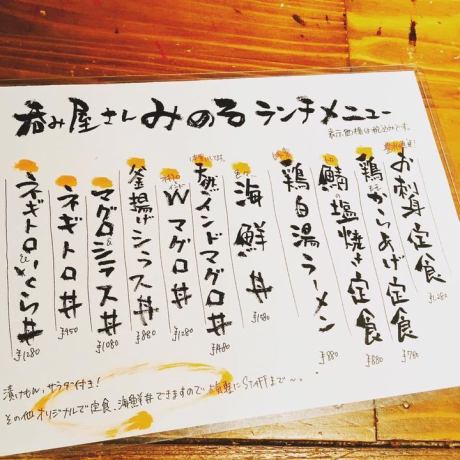 呑み屋さん みのる ランチメニュー
表示価格は税込みです。
お刺身定食
¥1280
鶏ももからあげ定食
¥780
鯖塩焼き定食
¥880
鶏白湯ラーメン
¥880
海鮮丼
¥1180
天然インドマグロ丼
¥1480
Wマグロ丼
¥1280
釜揚げシラス丼
¥880
マグロ&シラス丼
¥1080
ネギトロ丼
¥950
ネギトロ&いくら丼
¥1280
漬けもの、サラダ付き!
その他オリジナルで定食、海鮮丼できますので 気軽にSTAFFまで〜。